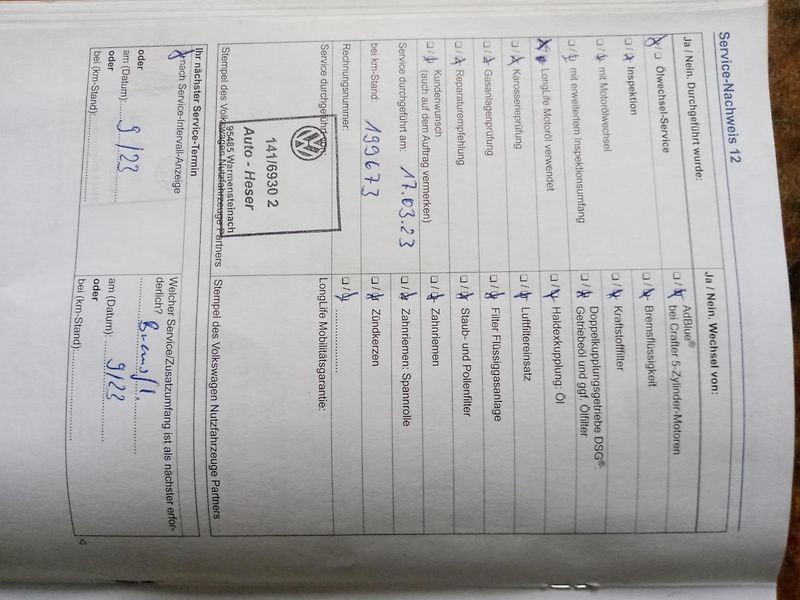 Service-Nachweis 12
Ja / Nein. Durchgeführt wurde:
Ölwechsel-Service
Inspektion
mit Motorölwechsel
mit erweitertem Inspektionsumfang
LongLife Motoröl verwendet
Karosserieprüfung
Gasanlagenprüfung
Reparaturempfehlung
Kundenwunsch
(auch auf dem Auftrag vermerken)
Service durchgeführt am: 17.03.23
bei km-Stand: 199673
Rechnungsnummer:
Service durchgeführt
141/6930 2
Auto - Heser
95485 Warmensteinach
Stempel des Volkswagen Nutzfahrzeuge Partners
Ja / Nein. Wechsel von:
AdBlue®
bei Crafter 5-Zylinder-Motoren
Bremsflüssigkeit
Kraftstofffilter
Doppelkupplungsgetriebe DSG®:
Getriebeöl und ggf. Ölfilter
Haldexkupplung: Öl
Luftfiltereinsatz
Filter Flüssiggasanlage
Staub- und Pollenfilter
Zahnriemen
Zahnriemen: Spannrolle
Zündkerzen
LongLife Mobilitätsgarantie:
Stempel des Volkswagen Nutzfahrzeuge Partners
Ihr nächster Service-Termin
nach Service-Intervall-Anzeige
oder
am (Datum): 9/23
oder
bei (km-Stand):
Welcher Service/Zusatzumfang ist als nächster erfor-
derlich?
Bremsfl.
am (Datum): 9/23
oder
bei (km-Stand):